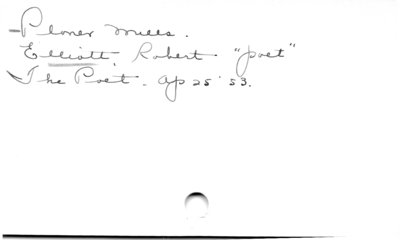 Plover Mills.
Elliott, Robert "poet"
The Poet. Ap 25 '53.